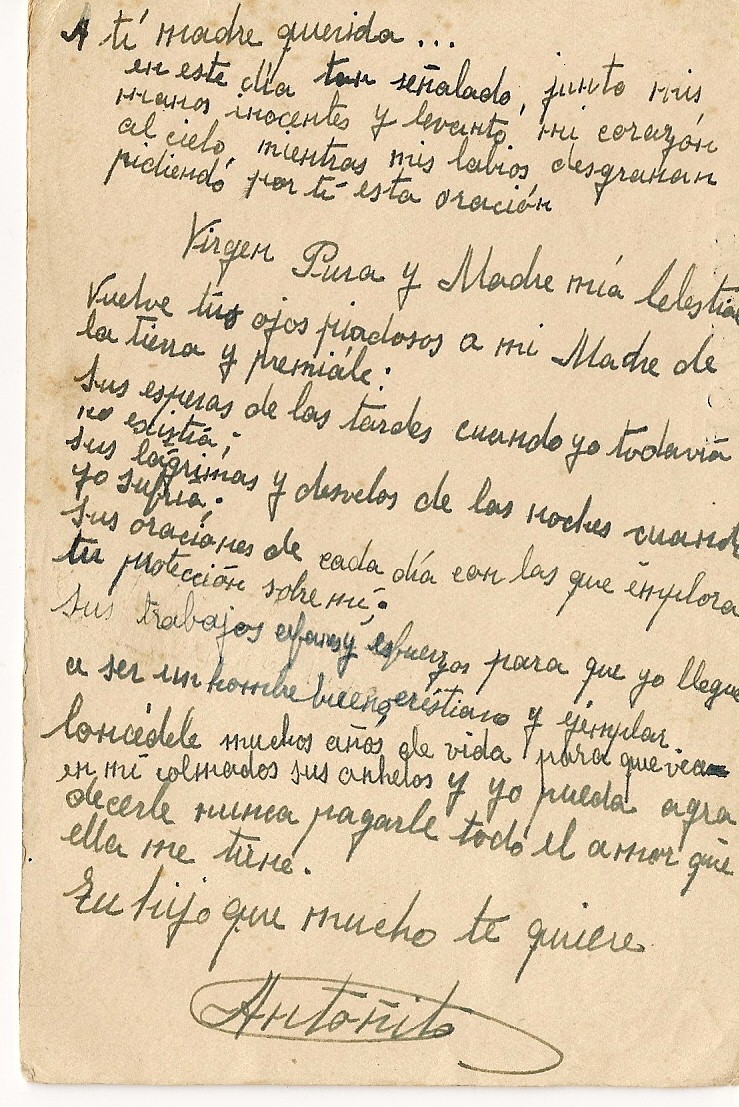 A tí madre querida ...
en este día tan señalado, junto mis
manos inocentes y levantó mi corazón
al cielo, mientras mis labios desgranan
pidiendó por tí esta oración
Virgen Pura y Madre mía Celestial
Vuelve tus ojos piadosos a mi Madre de
la tierra y premiále:
Sus esperas de las tardes cuando yo todaviá
no existiá;
sus lágrimas y desvelos de las noches cuando
yo sufriá;
sus oraciónes de cada día con las que implora
tu protección sobre mí;
sus trabajos afanes y esfuerzos para que yo llegue
a ser un hombre bueno, cristiano y ejemplar.
Concédele muchos años de vida para que vea
en mí colmados sus anhelos y yo pueda agra
decerle nunca pagarle todo el amor que
ella me tiene.
Tu hijo que mucho te quiere
Antoñito